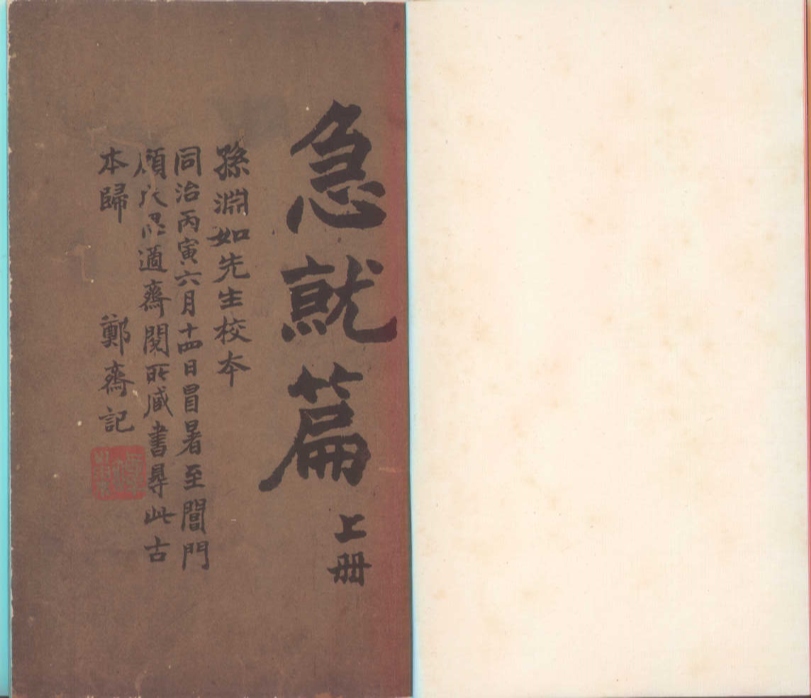 急就篇 上册
孫淵如先生校本
同治丙寅六月十四日冒暑至閶門
顧氏 過齋閱所藏書尋此古
本歸 鄭齋記